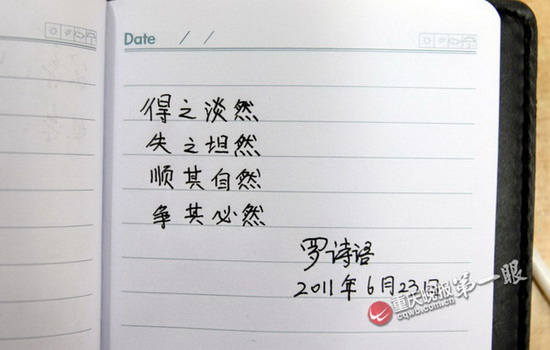 Date / /
得之淡然
失之坦然
顺其自然
争其必然
罗诗语
2011年6月23日
重庆晚报第一眼
cqwb.com.cn